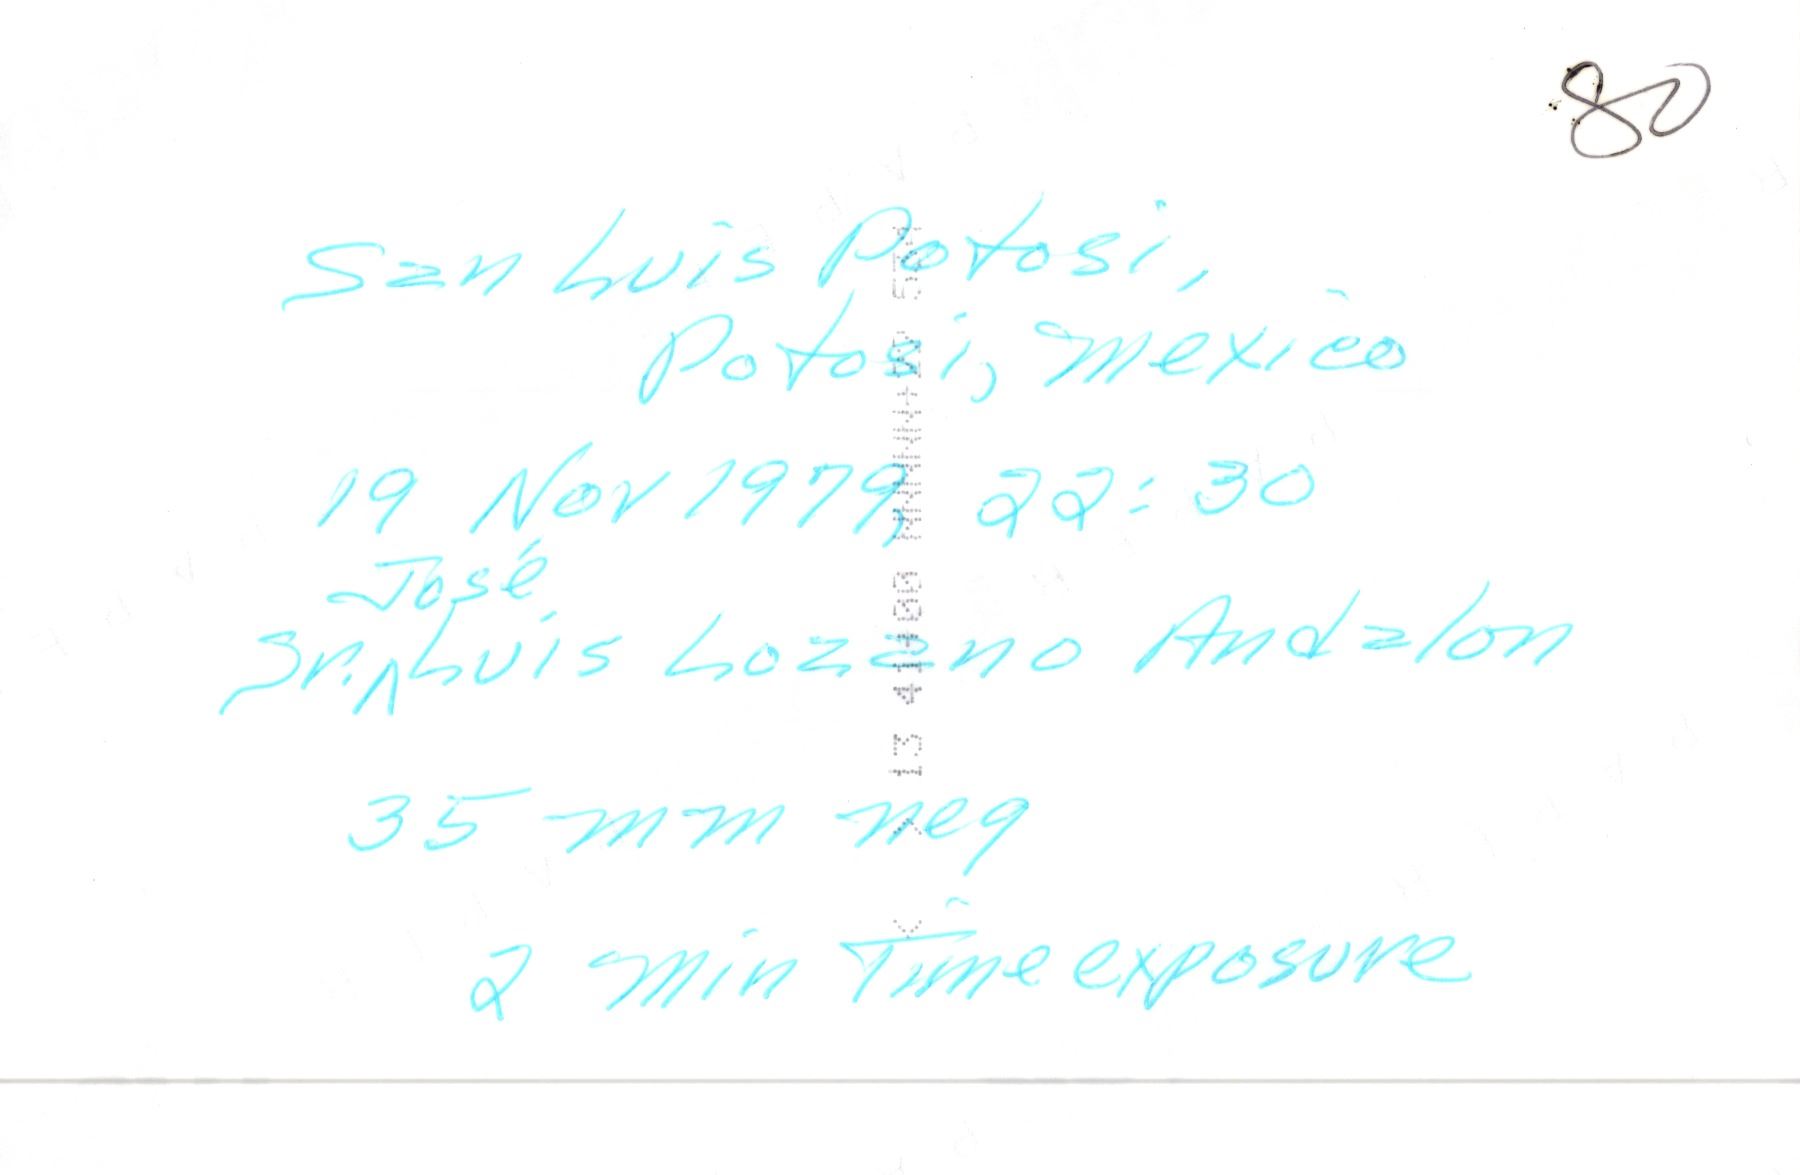 80
San Luis Potosi,
Potosi, Mexico
19 Nov 1979, 22:30
José
Sr. ^ Luis Lozano Andalon
35 mm neg
2 min Time exposure